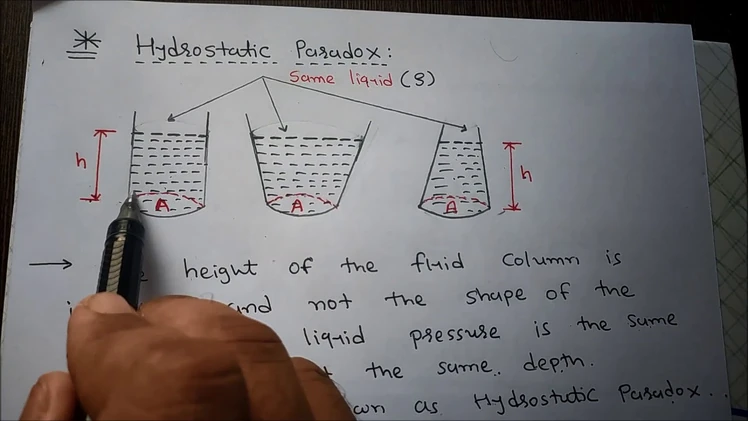 Hydrostatic Paradox:
Same liquid (ρ)
h
h
A
A
A
height of the fluid column is
and not the shape of the
liquid pressure is the same
the same depth.
as Hydrostatic Paradox..